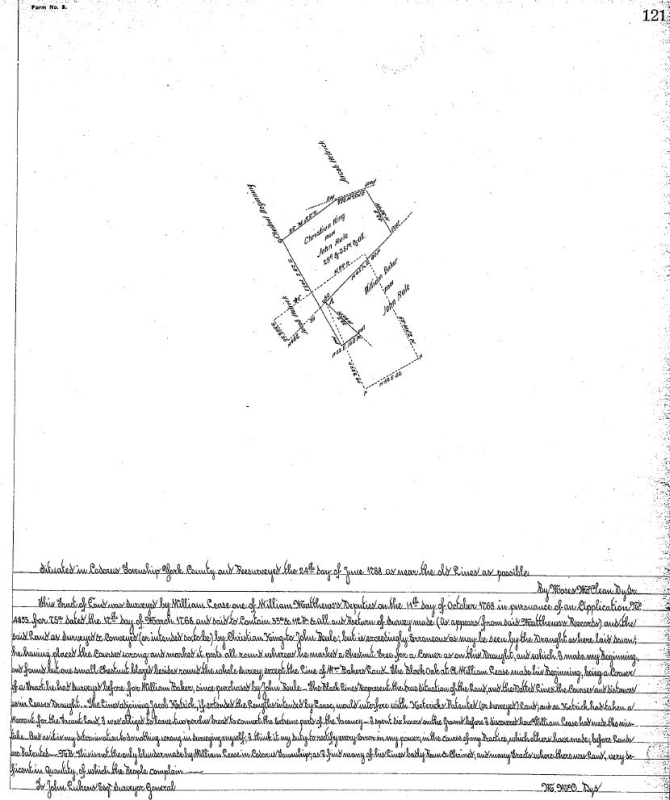 Form No. 3.
121
Jacob Hetrick
Conrad Beginning
Christian King
now
John Rule
William Baker
now
John Rule
Situated in Codorus Township York County and Resurveyed the 24th day of June 1788 as near the old Lines as possible.
By Moses McClean Dy Sr.
This Tract of Land was Surveyed by William Cease one of William Matthews's Deputies on the 11th day of October 1768 in pursuance of an Application No.
4833. for dated the 17th day of March 1768 and said to Contain & all and Return of Survey made (As appears from said Matthews's Records) and the
said Land as Surveyed is Conveyed (or intended so to be) by Christian King to John Rule; but is exceedingly Erroneous as may be seen by the Draught as here laid down;
he having placed the Courses wrong and marked it posts all round whereas he marked a Chestnut tree for a Corner as on this Draught, and which I made my Beginning,
and found but one small Chestnut blazed besides round the whole survey except the Line of Wm Baker's Land. The Black Oak at A William Cease made his Beginning, being a Corner
of a Tract he had Surveyed before for William Baker, since purchased by John Rule. The Black Lines Represent the true situation of the Land, and the Dotted Lines the Courses and distances
as in Cease's Draught. The Line adjoining Jacob Hetrick, if extended the Length intended by Cease, would interfere with Hetrick's Patented (or Surveyed) Land, and as Hetrick had taken a
Warrant for the Vacant Land, I was obliged to leave two perches breadth to connect the Extreme parts of the Vacancy. I spent hours on the Ground before I discovered how William Cease had made the mis-
take. But as it is my determination to do nothing wrong in Surveying myself, I think it my duty to rectify every Error in my power, in the course of my Practice, which others have made, before Lands
are Patented. N.B. This is not the only blunder made by William Cease in Codorus Township; as I find many of his Lines badly Run & Chained, and many Tracts where there was Land, very de-
ficient in Quantity, of which the People complain
To John Lukens Esqr Surveyor General
M. McC. Dys